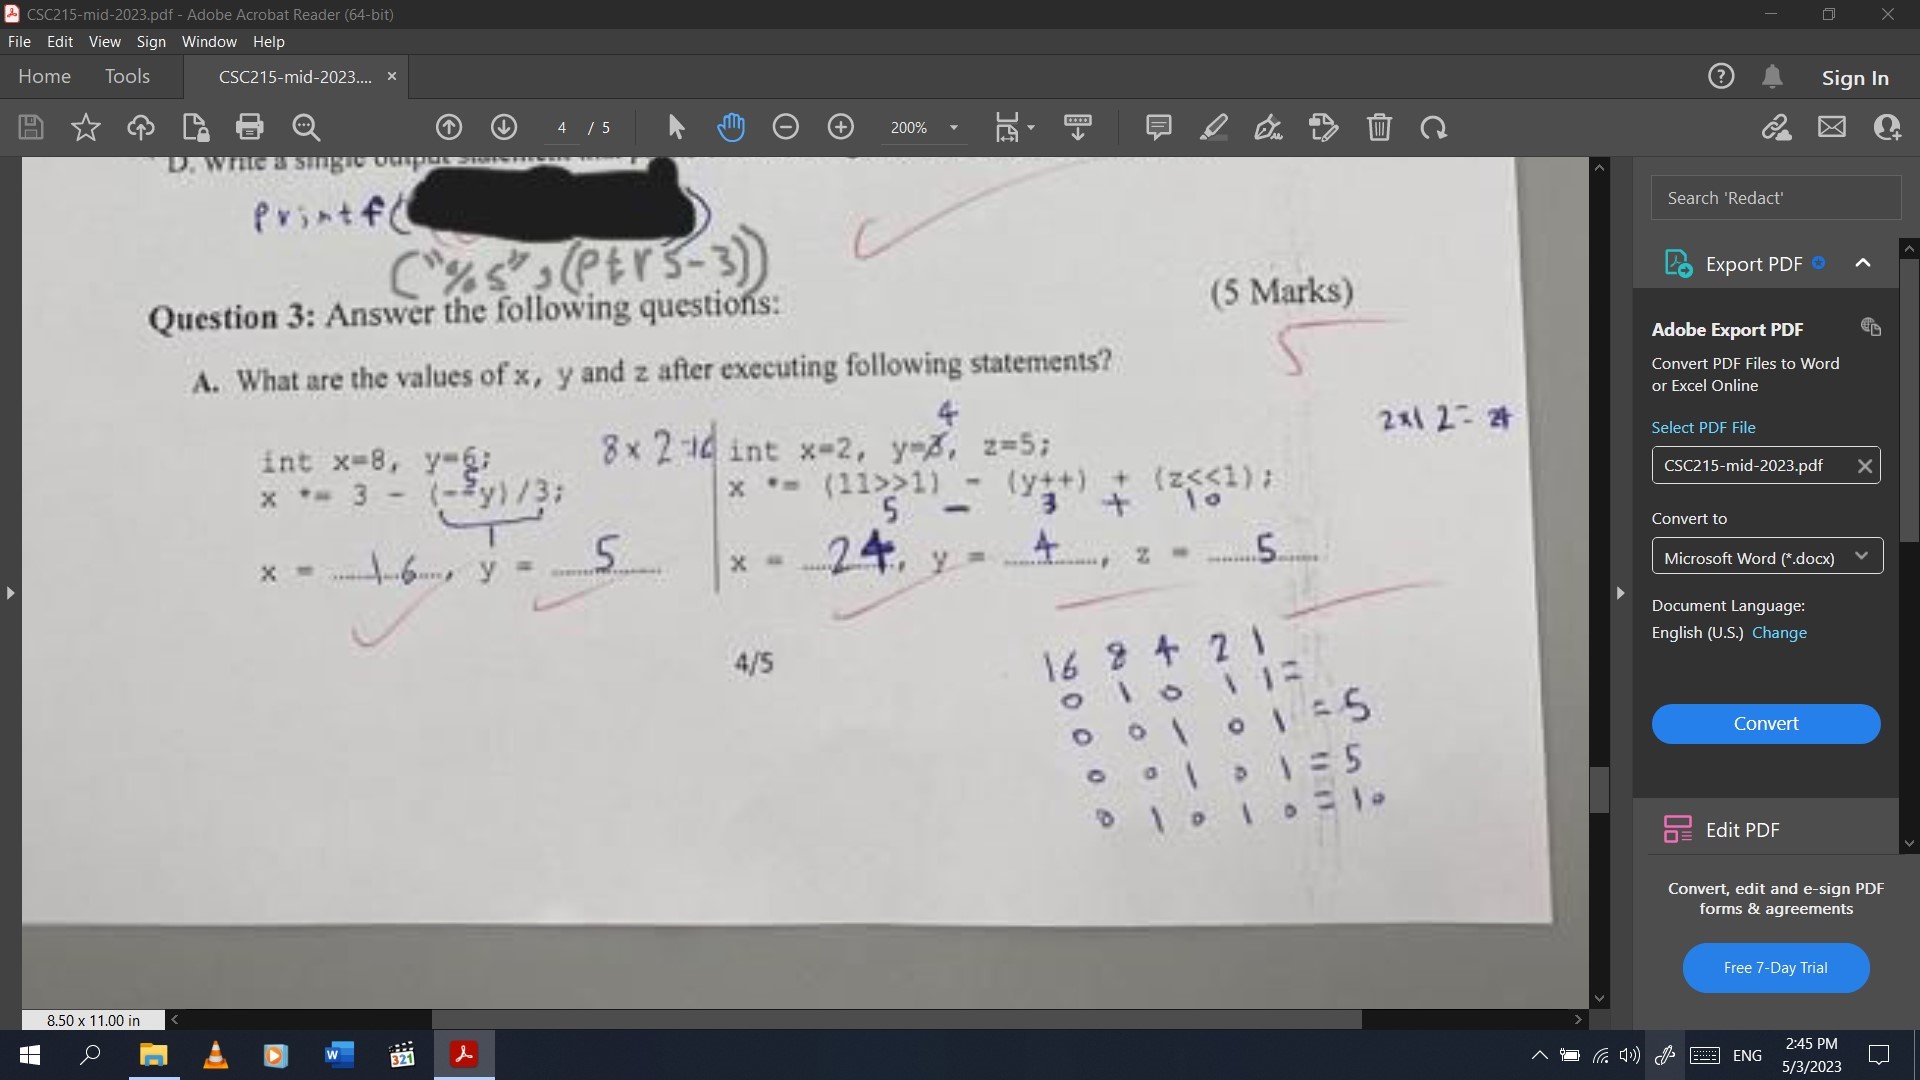 CSC215-mid-2023.pdf - Adobe Acrobat Reader (64-bit)
File Edit View Sign Window Help
Home Tools CSC215-mid-2023.... × Sign In
4 / 5 200%
D. Write a single output
printf(
("%s",(ptr5-3))
Question 3: Answer the following questions: (5 Marks)
5
A. What are the values of x, y and z after executing following statements?
2x12=24
4
int x=8, y=6; 8x2=16 int x=2, y=3, z=5;
5
x *= 3 - (--y)/3; x *= (11>>1) - (y++) + (z<<1);
1 5 - 3 + 10
x = 16, y = 5 x = 24, y = 4, z = 5
4/5
16 8 4 2 1
0 1 0 1 1 =
0 0 1 0 1 = 5
0 0 1 0 1 = 5
0 1 0 1 0 = 10
8.50 x 11.00 in
Search 'Redact'
Export PDF
Adobe Export PDF
Convert PDF Files to Word
or Excel Online
Select PDF File
CSC215-mid-2023.pdf
Convert to
Microsoft Word (*.docx)
Document Language:
English (U.S.) Change
Convert
Edit PDF
Convert, edit and e-sign PDF
forms & agreements
Free 7-Day Trial
ENG
2:45 PM
5/3/2023